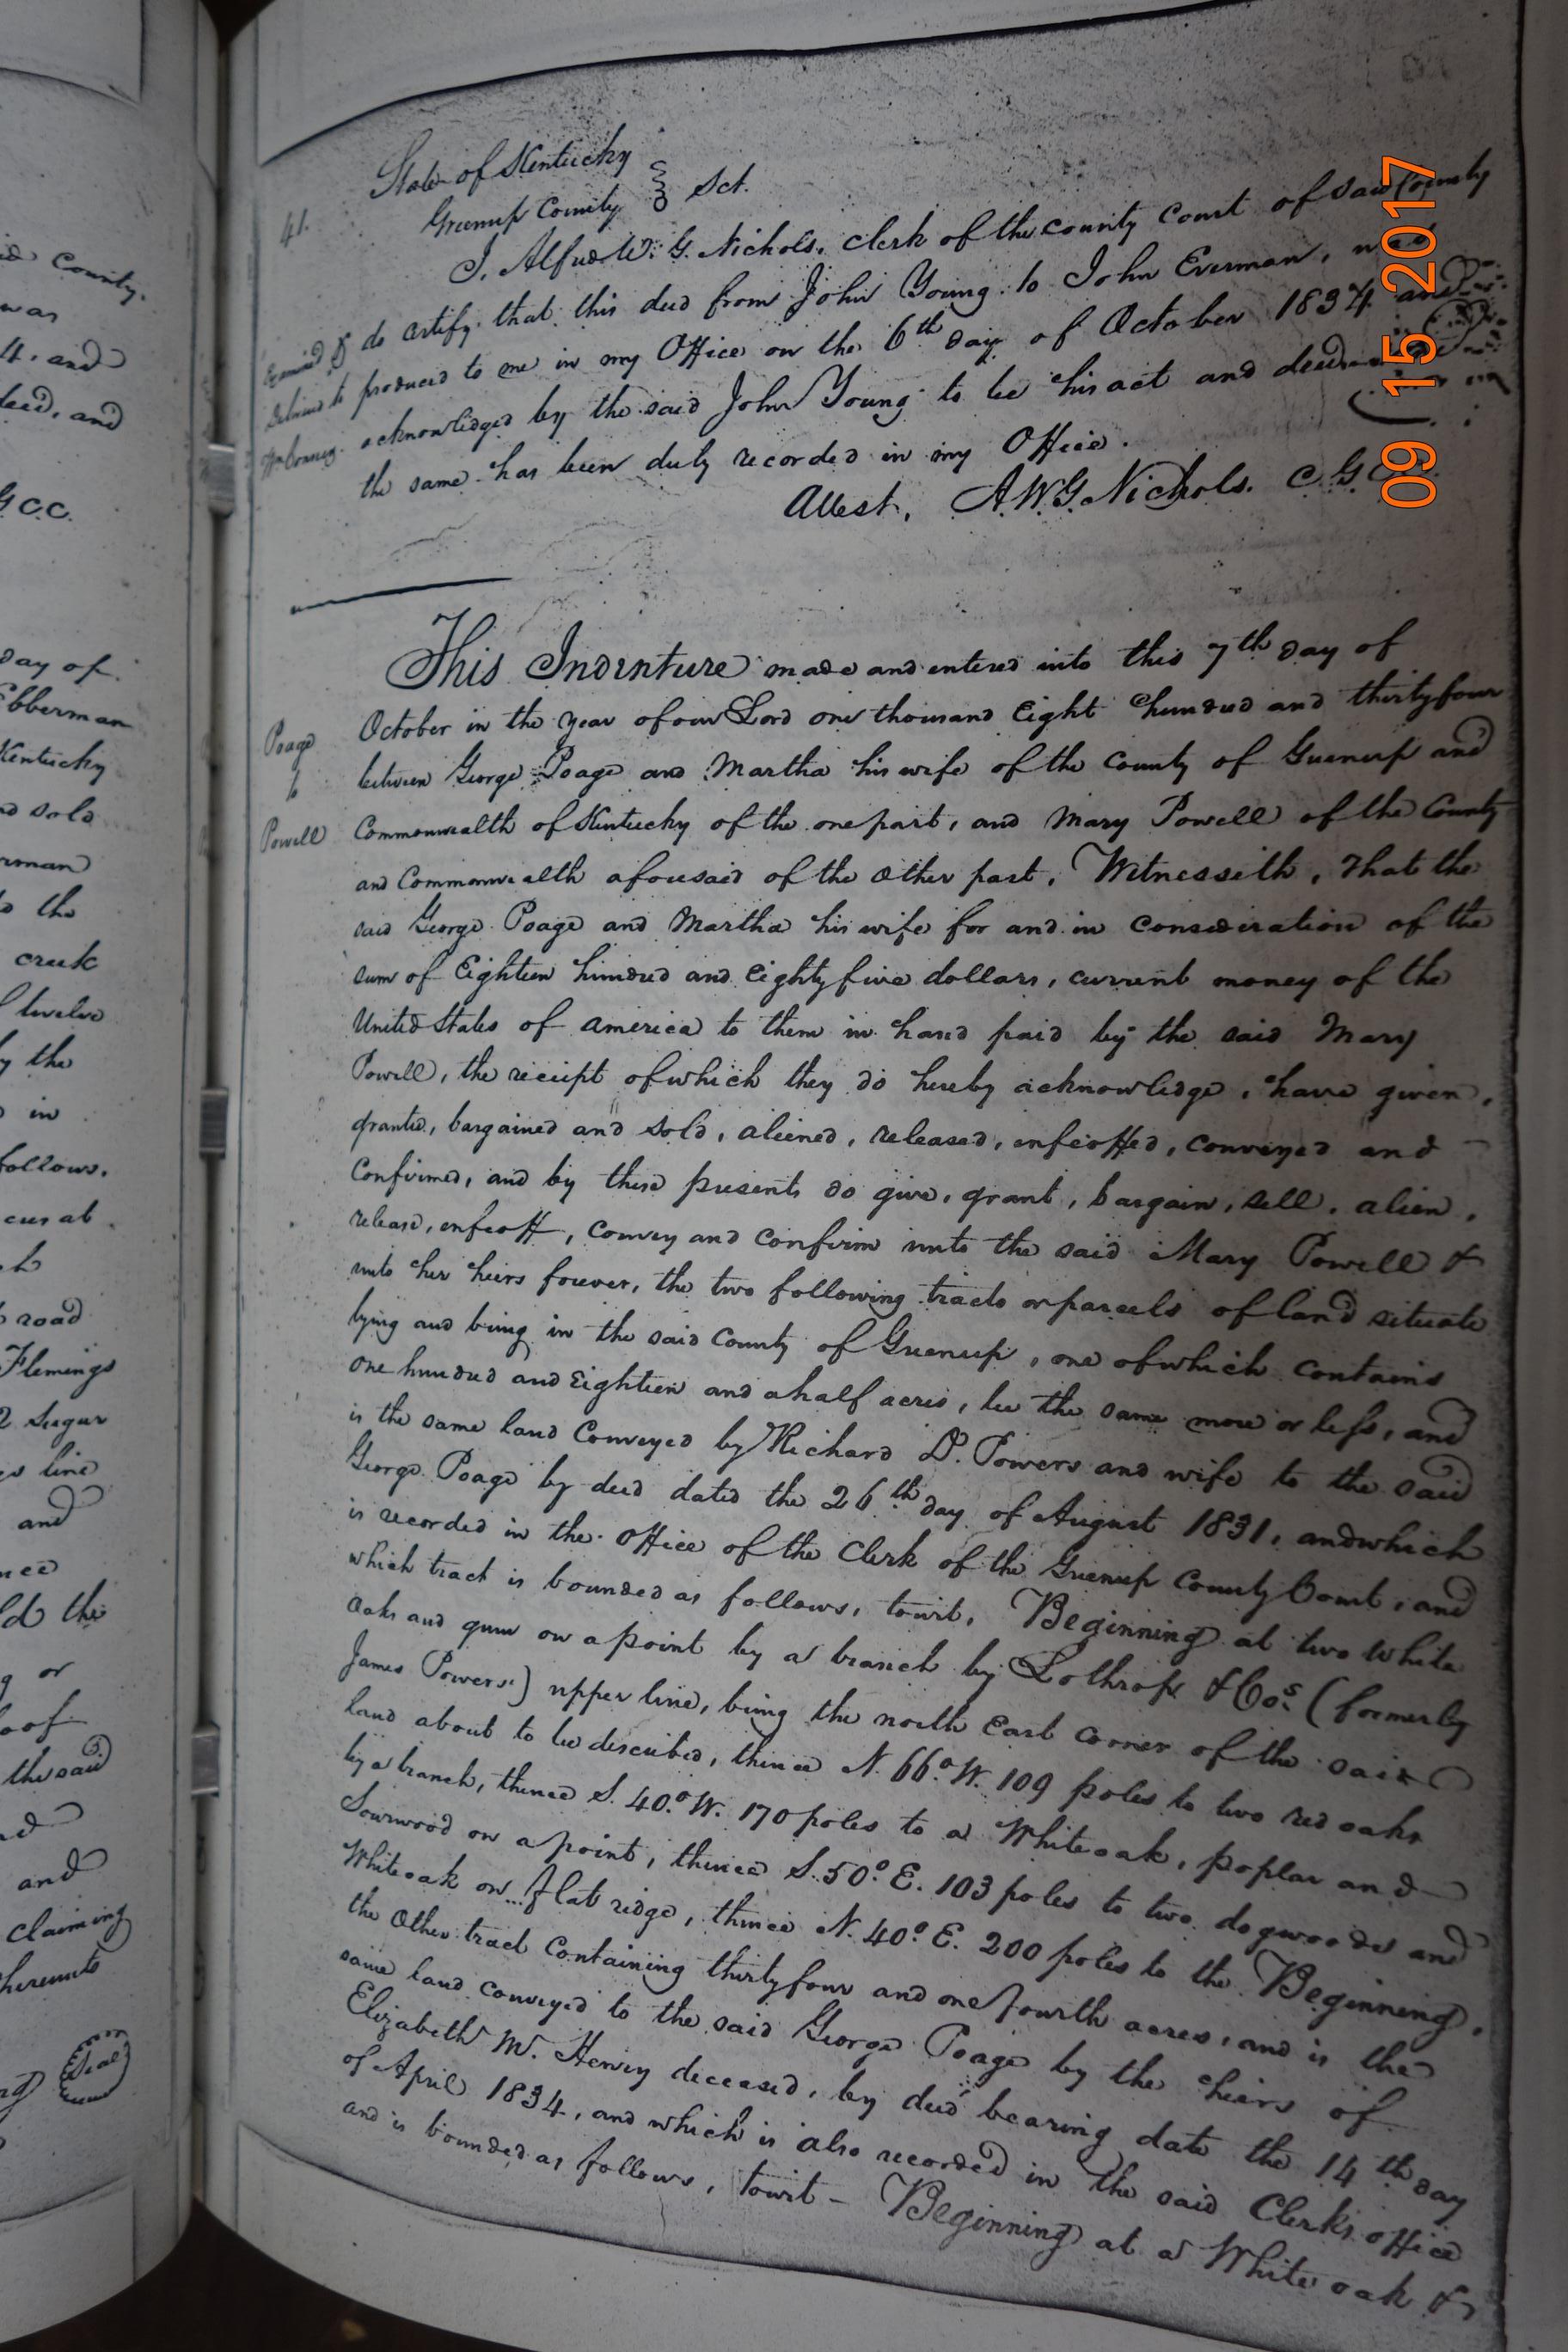 id County.
was
4. and
deed, and
G.C.C.
day of
Ebberman
Kentucky
nd sold
rman
to the
creek
l twelve
y the
in
follows.
cus at
road
Flemings
2 Sugar
line
and
nce
ld the
g or
oof
the said
and
claiming
hereunto
Seal
09 15 2017
41.
State of Kentucky
Greenup County Sct.
I, Alfred W. G. Nichols, Clerk of the county Court of said County
do certify that this deed from John Young to John Everman, was
produced to me in my Office on the 6th day of October 1834 and
acknowledged by the said John Young to be his act and deed
the same has been duly recorded in my Office.
Examined &
Delivered to
Attest, A.W.G. Nichols. C.G.C.
This Indenture made and entered into this 7th day of
October in the year of our Lord one thousand Eight hundred and thirtyfour
Poage
to
Powell
between George Poage and Martha his wife of the County of Greenup and
Commonwealth of Kentucky of the one part, and Mary Powell of the County
and Commonwealth aforesaid of the other part, Witnesseth, That the
said George Poage and Martha his wife for and in consideration of the
sum of Eighteen hundred and Eighty five dollars, current money of the
United States of america to them in hand paid by the said Mary
Powell, the receipt of which they do hereby acknowledge, have given,
granted, bargained and sold, aliened, released, enfeoffed, conveyed and
Confirmed, and by these presents do give, grant, bargain, sell, alien,
release, enfeoff, convey and confirm unto the said Mary Powell &
unto her heirs forever, the two following tracts or parcels of land situate
lying and being in the said County of Greenup, one of which contains
one hundred and Eighteen and a half acres, be the same more or less, and
is the same land Conveyed by Richard D. Powers and wife to the said
George Poage by deed dated the 26th day of August 1831, and which
is recorded in the Office of the Clerk of the Greenup County Court, and
which tract is bounded as follows, towit, Beginning at two White
Oaks and gum on a point by a branch by Lothrop & Cos. (formerly
James Powers') upper line, being the north East corner of the said
land about to be described, thence N. 66° W. 109 poles to two red oaks
by a branch, thence S. 40° W. 170 poles to a White oak, poplar and
Sourwood on a point, thence S. 50° E. 103 poles to two dogwoods and
White oak on flat ridge, thence N. 40° E. 200 poles to the Beginning.
the Other tract Containing thirty four and one fourth acres, and is the
same land conveyed to the said George Poage by the heirs of
Elizabeth W. Henry deceased, by deed bearing date the 14th day
of April 1834, and which is also recorded in the said Clerks office
and is bounded as follows, towit - Beginning at a White oak &